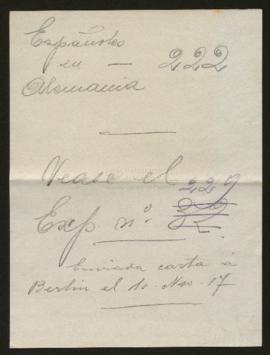 Españoles
en — 222
Alemania
Vease el 229
Exp. nº.
Enviada carta á
Berlin el 10. Nov. 17